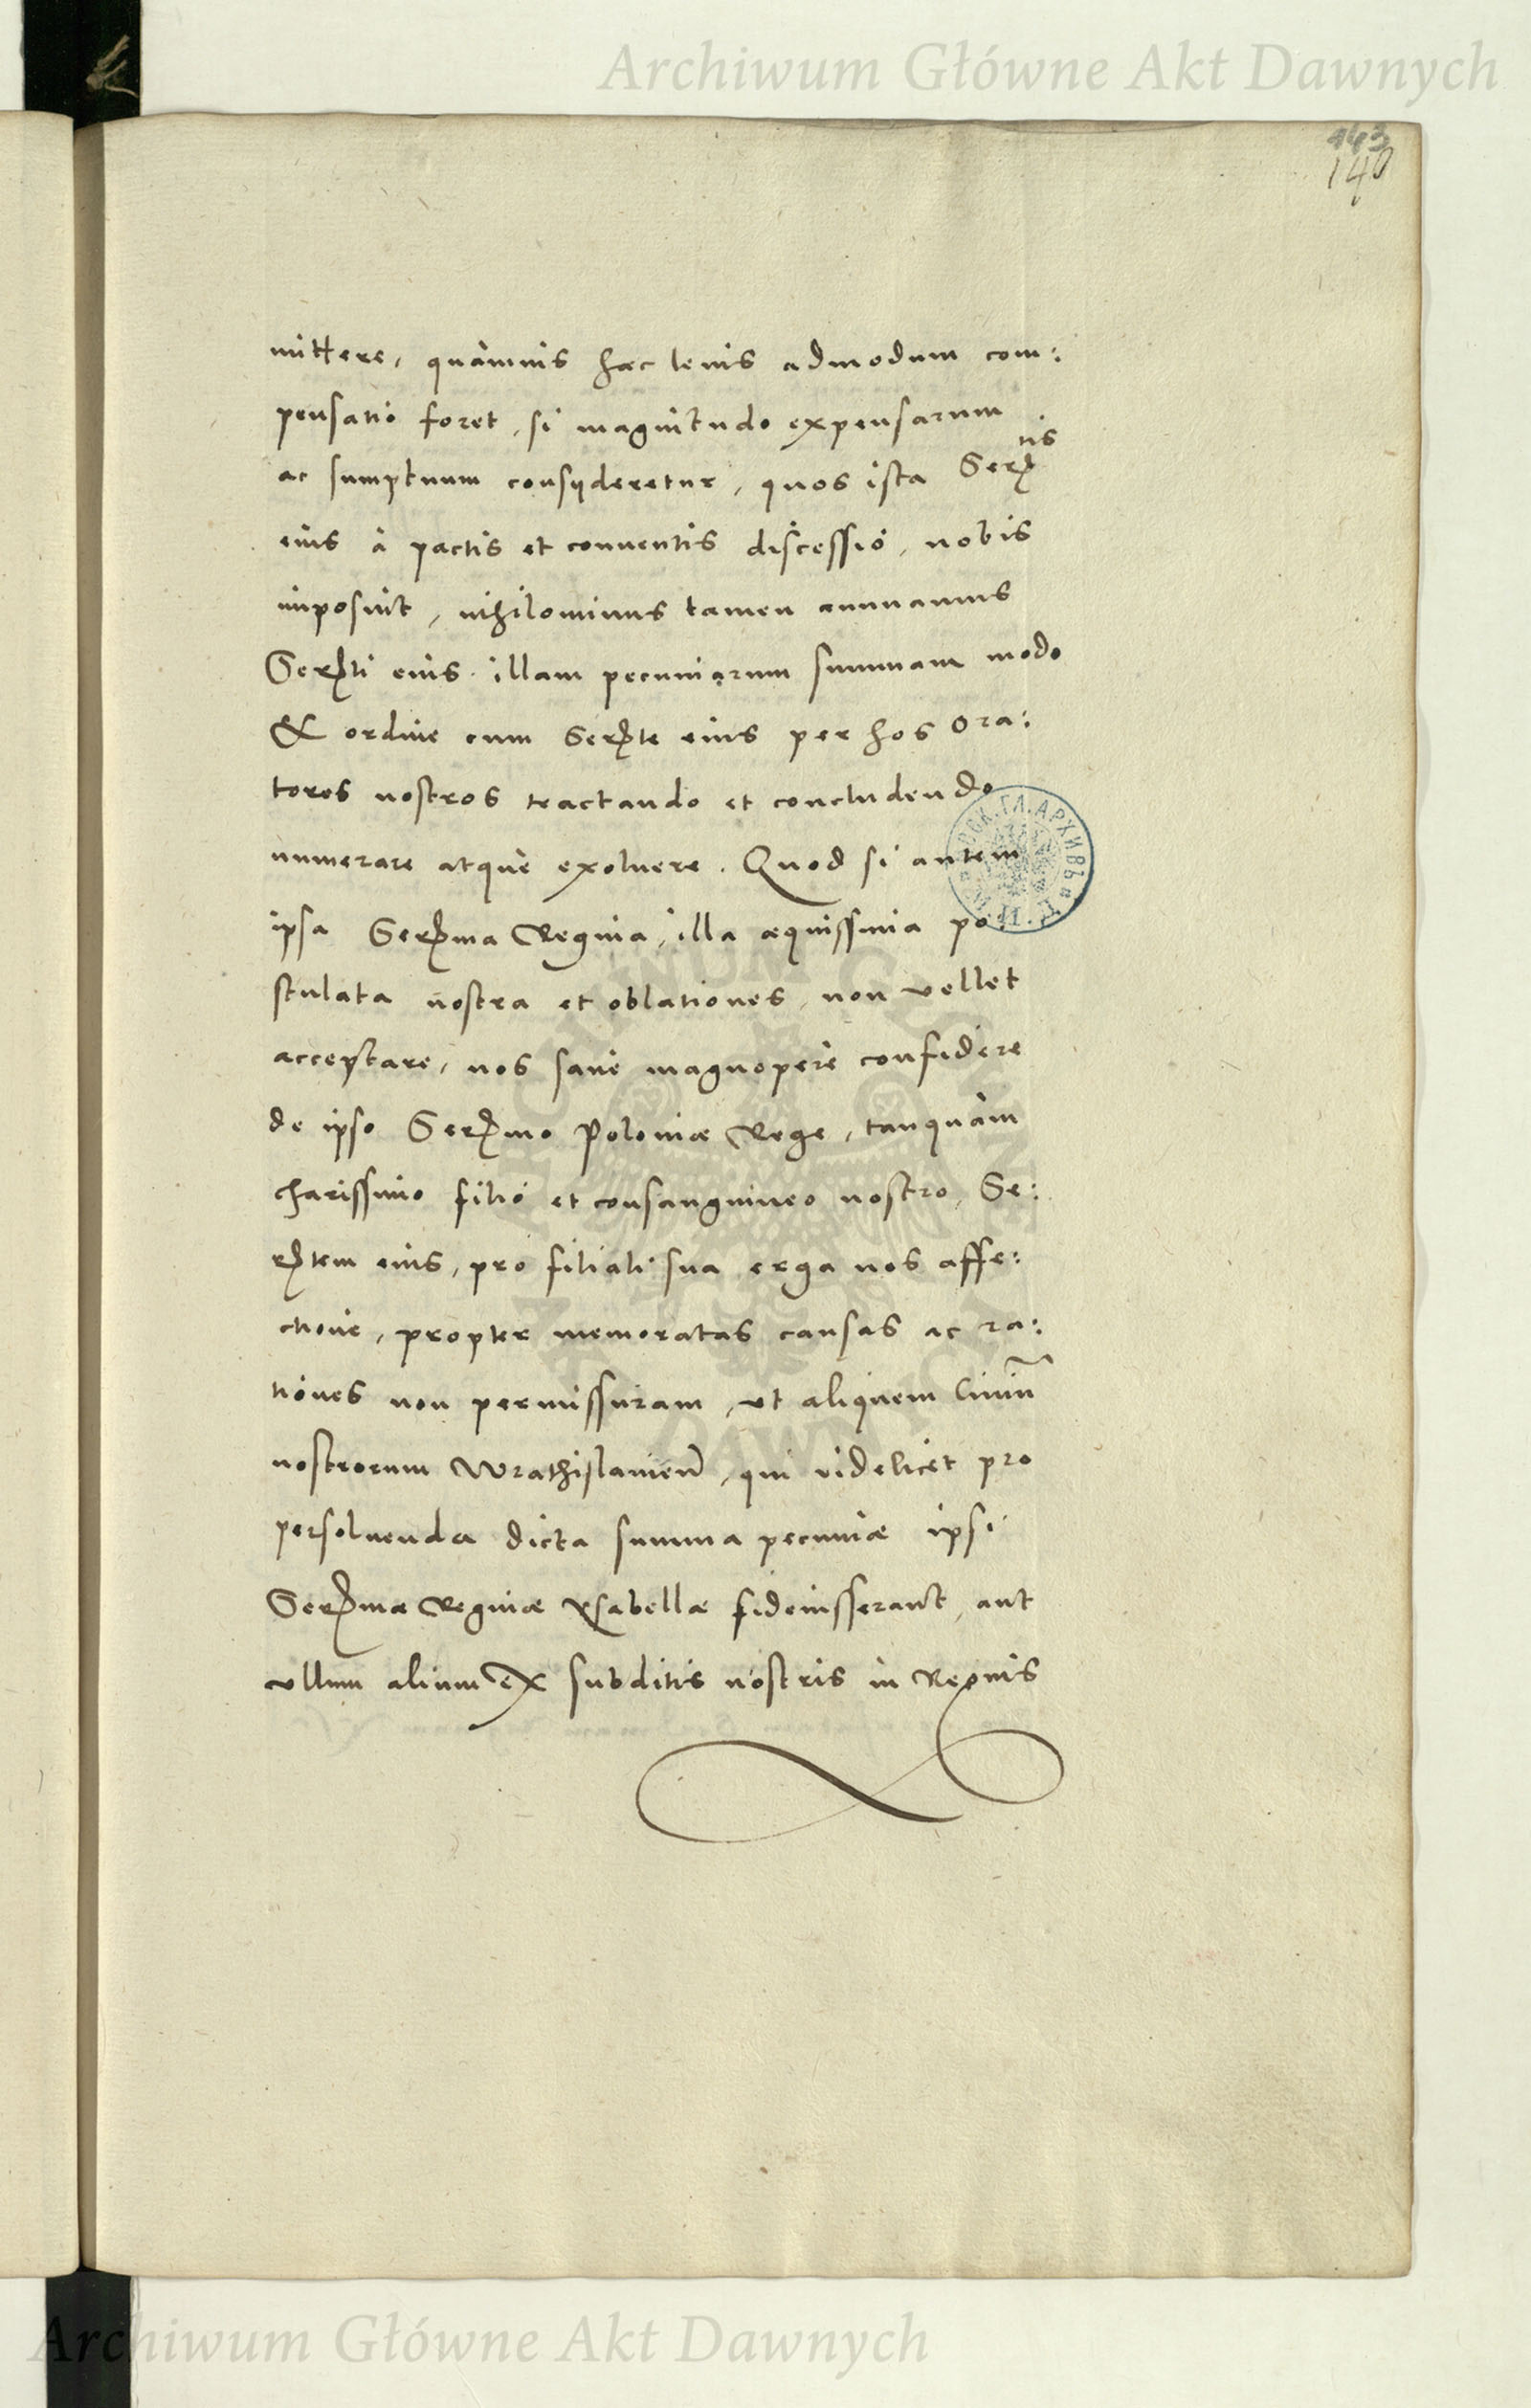 Archiwum Główne Akt Dawnych
143
140
mittere, quàmuis haec leuis admodum com:
pensatio foret, si magnitudo expensarum
ac sumptuum consyderetur, quos ista Serᵗⁱˢ
eius à pactis et conuentis discessio, nobis
imposuit, nihilominus tamen annuamus
Serti eius illam pecuniarum summam modo
& ordine cum Serte eius per hos Ora:
tores nostros tractando et concludendo
numerare atque exoluere. Quod si autem
ipsa Serma Regina, illa aequissima po:
stulata nostra et oblationes, non vellet
acceptare, nos sanè magnopere confidere
de ipso Sermo Poloniae Rege, tanquàm
charissimo filio et consanguineo nostro, Se:
rtem eius, pro filiali sua erga nos affe:
ctione, propter memoratas causas ac ra:
tiones non permissuram, vt aliquem Ciuiū
nostrorum Wrathislauien, qui videlicet pro
persoluenda dicta summa pecuniae ipsi
Sermae Reginae Ysabellae fideiusserant, aut
vllum alium ex subditis nostris in Regnis
Archiwum Główne Akt Dawnych